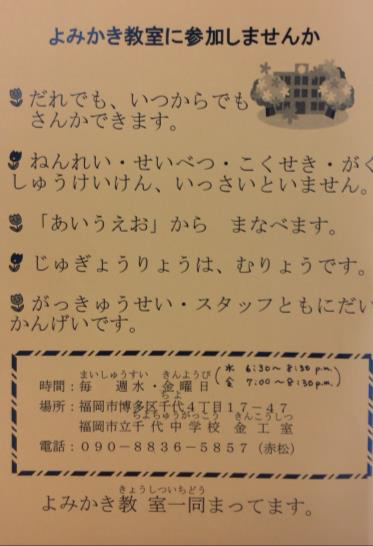 よみかき教室に参加しませんか
だれでも、いつからでも
さんかできます。
ねんれい・せいべつ・こくせき・がく
しゅうけいけん、いっさいといません。
「あいうえお」から　まなべます。
じゅぎょうりょうは、むりょうです。
がっきゅうせい・スタッフともにだい
かんげいです。
まいしゅうすい　きんようび
時間：毎　週水・金曜日（水 6:30～8:30 p.m.
金 7:00～8:30 p.m.）
ちよ
場所：福岡市博多区千代４丁目１７－４７
ちよちゅうがっこう　きんこうしつ
福岡市立千代中学校　金工室
電話：０９０－８８３６－５８５７（赤松）
きょうしついちどう
よみかき教室一同まってます。